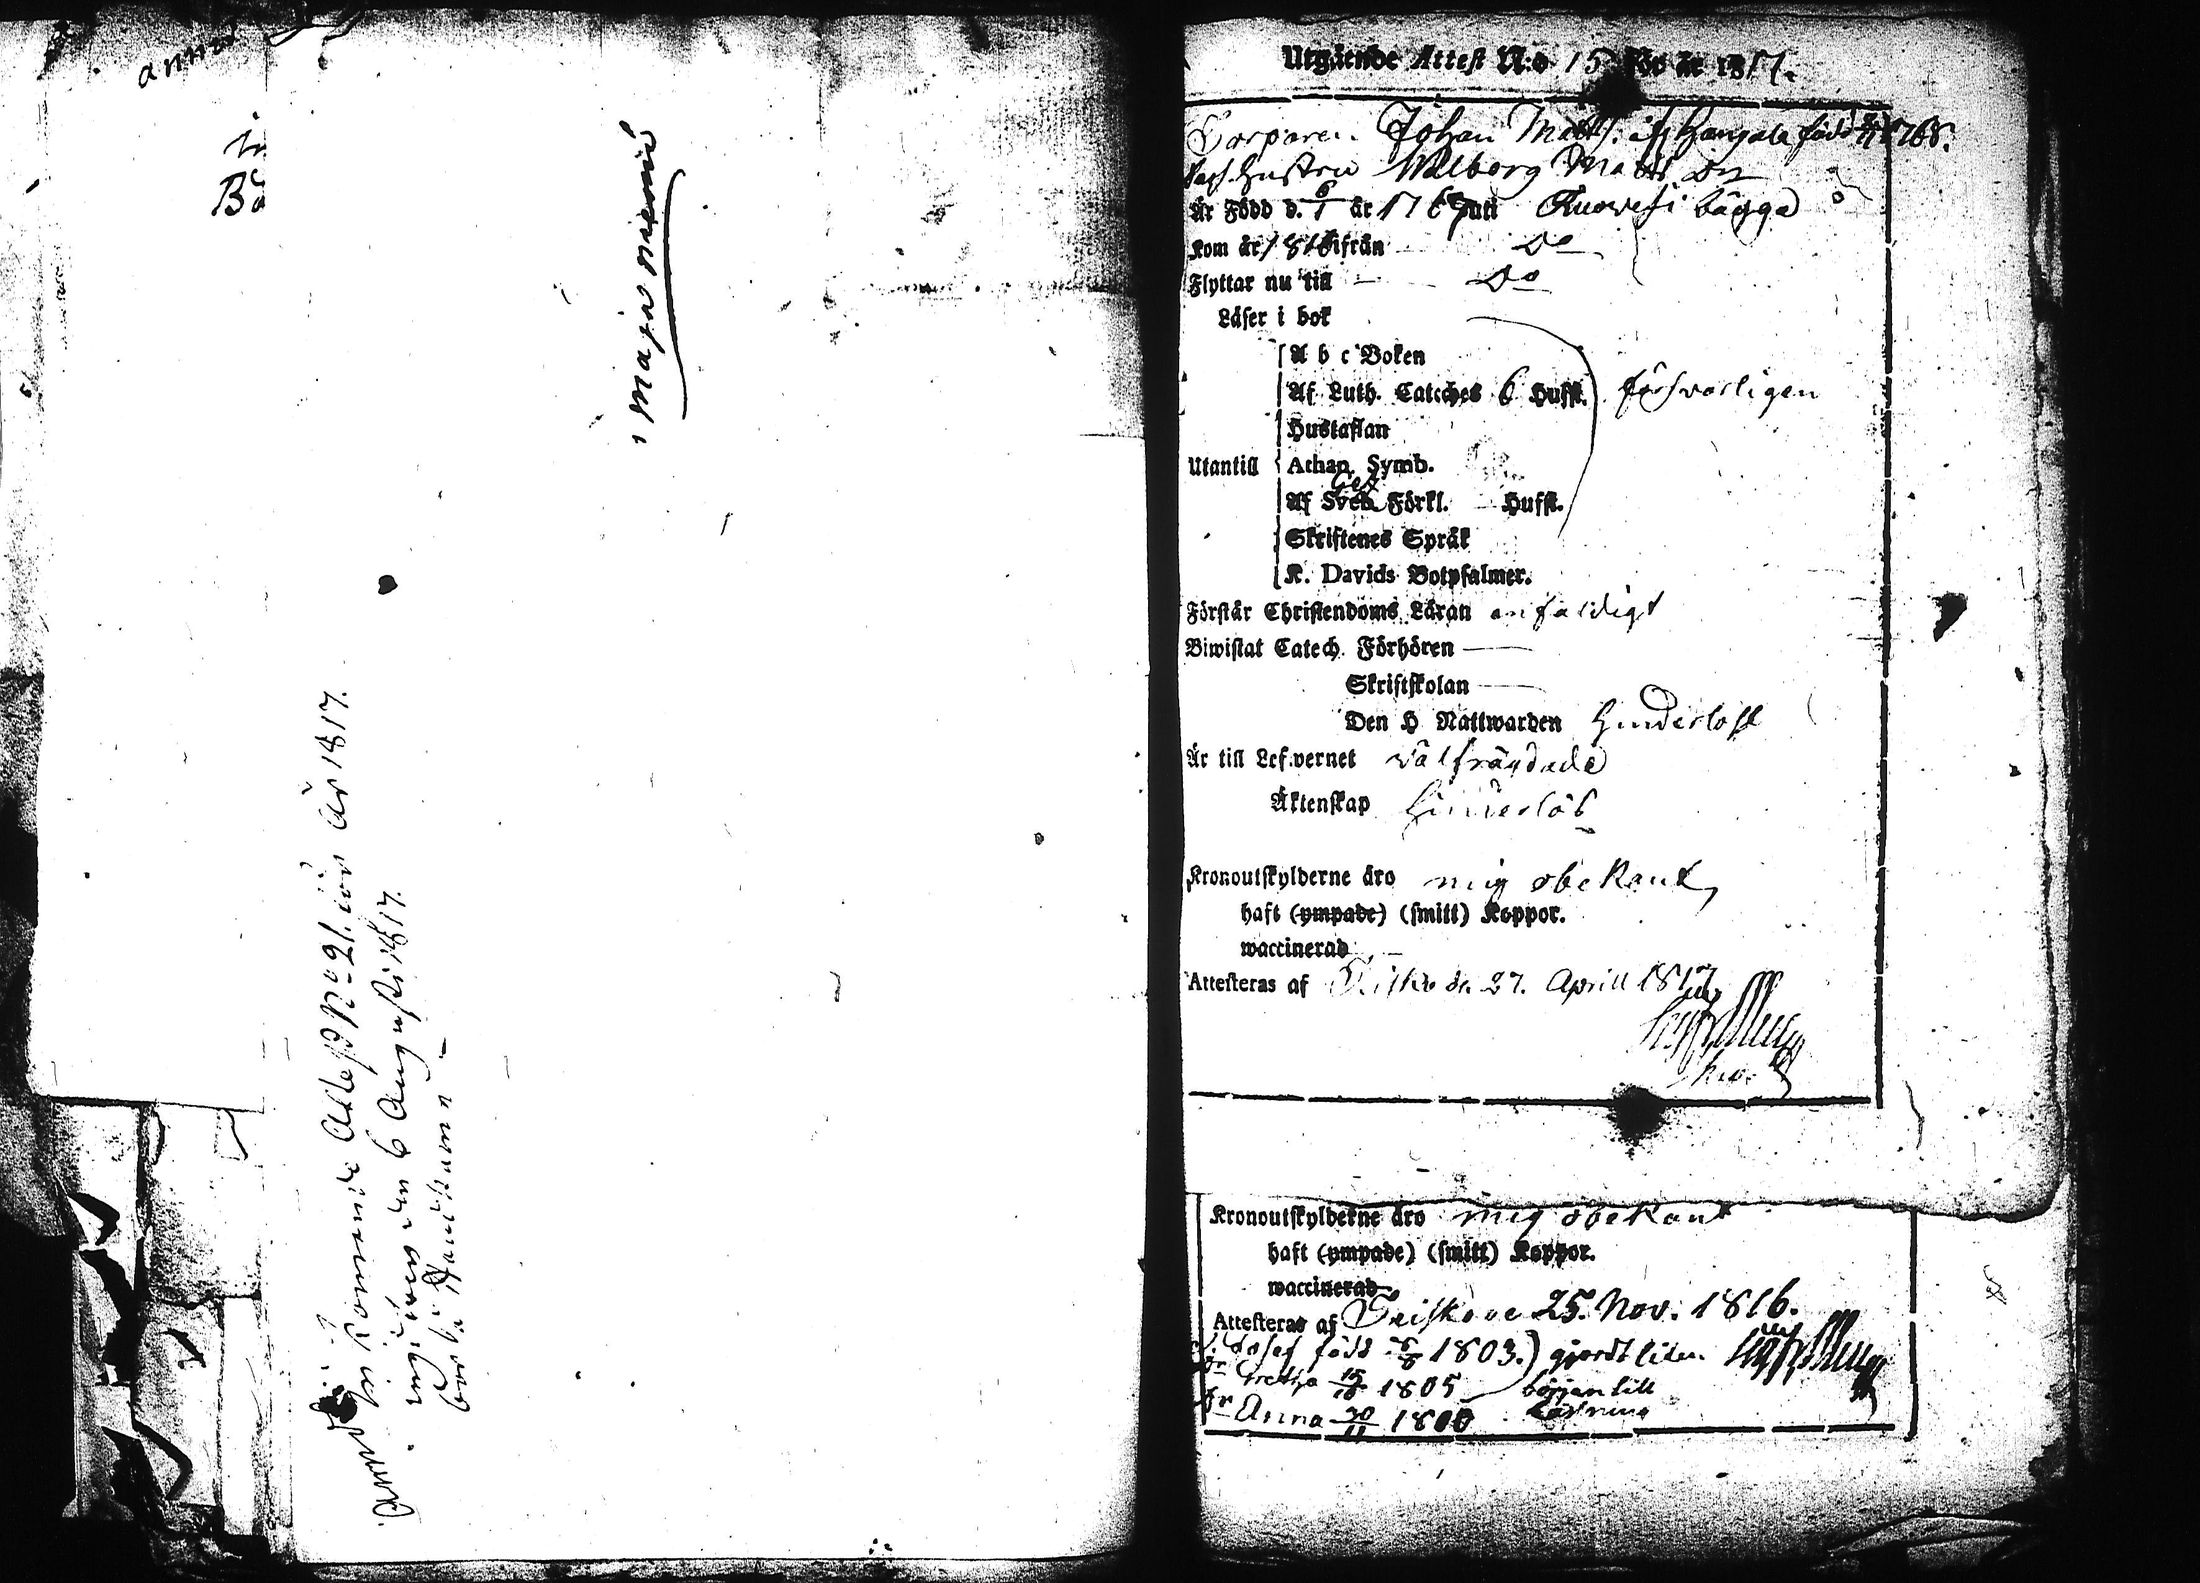 anna
Bö
Maja niemi
Inkommande Attest No 21. för år 1817.
ingifven den 6 Augusti 1817.
Utgående Attest N:o 15 för år 1817.
Torparen Johan Matts. ifr Kangala född 1768.
hustru Walborg Matts Dr
Är Född d. 6/1 år 1767 uti Ruovesi bägge
Kom år 1816 ifrån Do
Flyttar nu till Do
Läser i bok
A b c Boken
Af Luth. Catches 6 Hufst. försvarligen
Hustaflan
Utantill Athan. Symb.
Af Sveb. Förkl. Hufst.
Skriftenes Språk
K. Davids Botpsalmer.
Förstår Christendoms Läran enfaldigt
Biwistat Catech. Förhören —
Skriftskolan —
Den H Nattwarden hinderlöst
Är till Lefvernet välfrägdade
Äktenskap hinderlös
Kronoutskylderne äro mig obekant,
haft (ympade) (smitt) Koppor.
waccinerad —
Attesteras af Teisko d. 27. Aprill 1817
Kronoutskylderne äro mig obekant
haft (ympade) (smitt) Koppor.
waccinerad
Attesteras af Teisko 25. Nov. 1816.
Josef född 6/8 1803.) gjordt liten
Dr Gretha 15/10 1805 början till
Dr Anna 30/11 1808 läsning